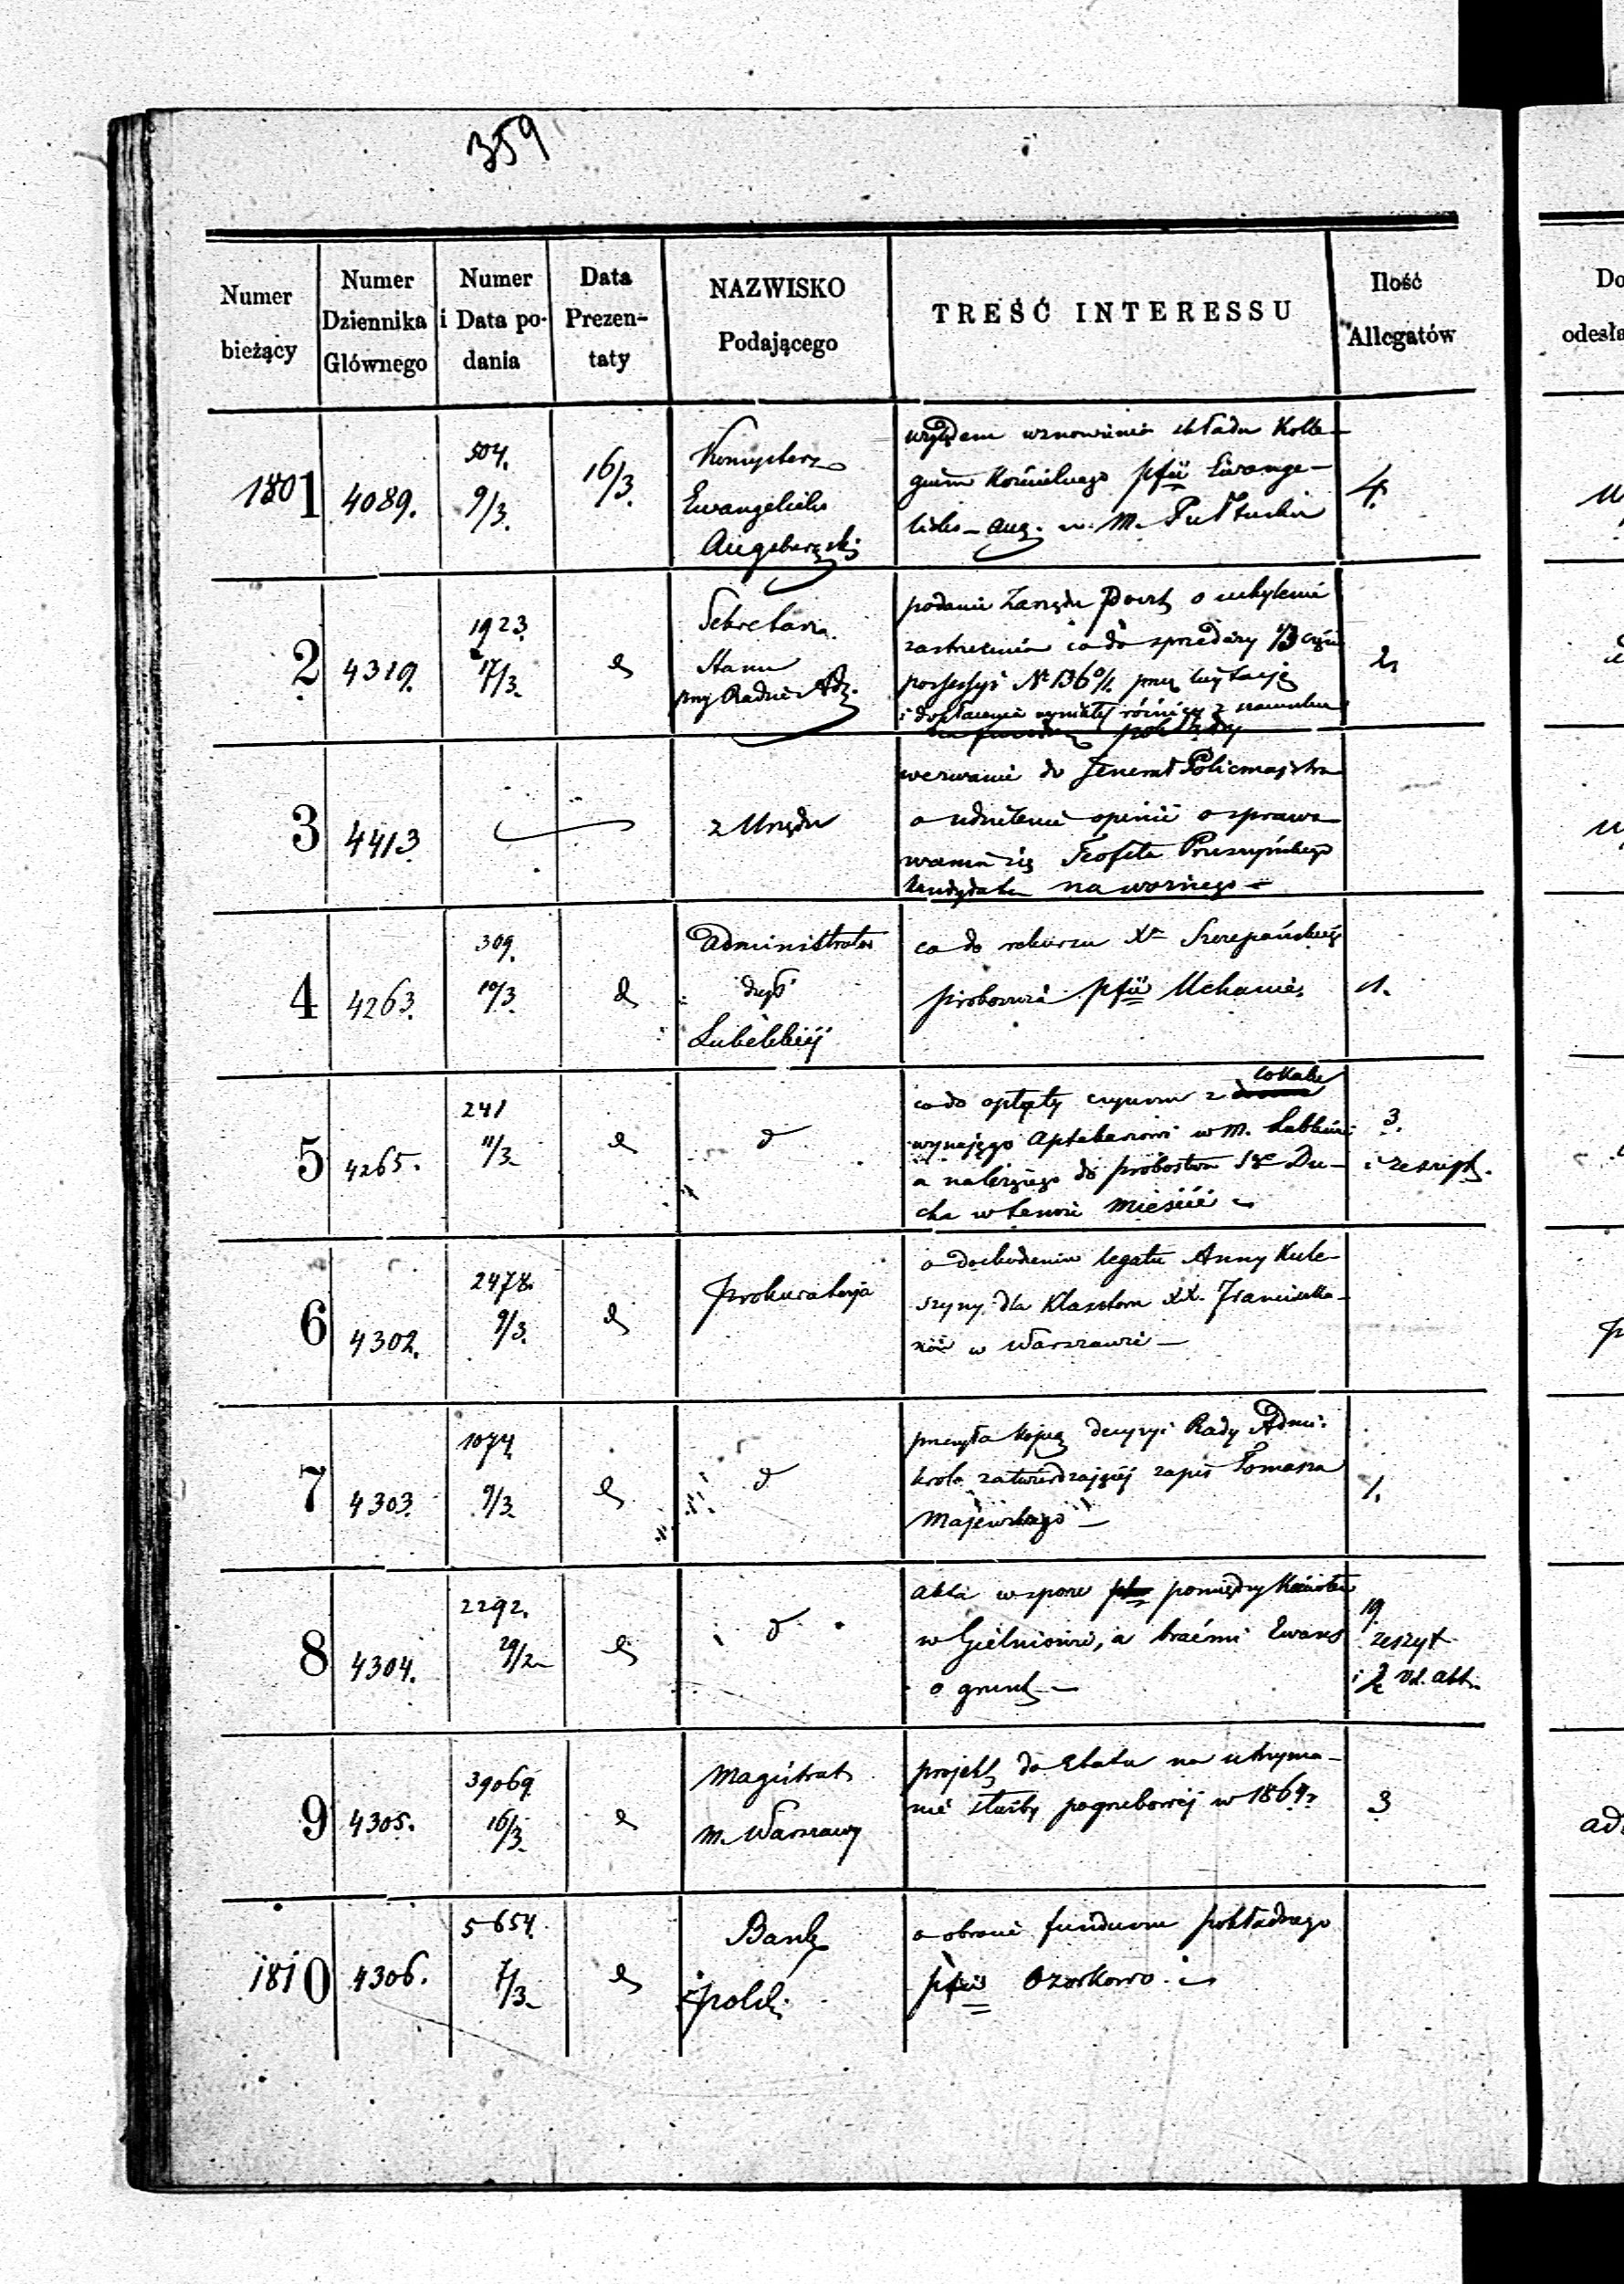 359
Numer bieżący
Numer Dziennika Głównego
Numer i Data podania
Data Prezentaty
NAZWISKO Podającego
TREŚĆ INTERESSU
Ilość Allegatów
Do
odesła
1801
4089.
504.
9/3.
16/3.
Konsystorz
Ewangelicko
Augsburgski
względem wznowienia składu Kolle-
gium Kościelnego pfii Ewange-
licko-aug. w M. Pułtusku
4.
2
4319.
1923.
17/3.
d
Sekretarz
Stanu
przy Radzie Adz.
podanie Zarządu Poczt o uchylenie
zastrzeżenia co do sprzedaży 1/3 części
possessyi № 136 przez licytację
i dopłacenia wynikłej różnicy z szacunku
3
4413
z Urzędu
wezwanie do Jenerał Policmajstra
o udzielenie opinii o sprawo-
waniu się Teofila Pruszyńskiego
kandydata na woźnego
4
4263.
309.
10/3.
d
Administrator
dyec
Lubelskiej
co do rekursu Xa Szczepańskiego
proboszcza pfii Uchanie,
1.
5
4265.
241
11/3.
d
d
co do opłaty czynszu z lokalu
wynajęgo Aptekarzowi w M. Lublinie
a należącego do probostwa Sgo Du-
cha w temże mieście
3.
i zeszyt.
6
4302.
2478.
9/3.
d
Prokuratorja
o dochodzeniu legatu Anny Kule-
szyny dla Klasztoru XX. Franciszka-
nów w Warszawie
7
4303.
1074
9/3.
d
d
przesyła kopię decyzyi Rady Admi:
krola zatwierdzającej zapis Tomasza
Majewskiego
1.
8
4304.
2292.
29/2
d
d
akta w sporze pomiędzy Kościołem
w Gielniowie, a braćmi Ewans
o grunt
19
zeszyt
i 2 vol. akt.
9
4305.
39069
16/3.
d
Magistrat
m. Warszawy
projekt do Etatu na utrzyma-
nie służby pogrzebowej w 1864 r
3
1810
4306.
5654.
7/3.
d
Bank
polski
o obrocie funduszu pokładnego
pfii Ozorkowo